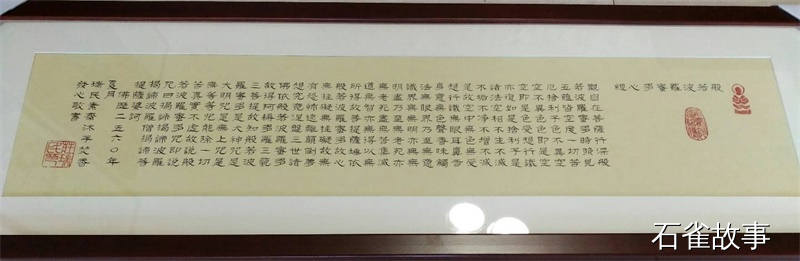 般若波羅蜜多心經
觀自在菩薩行深般
若波羅蜜多時照見
五蘊皆空度一切苦
厄捨利子色不異空
空不異色色即是空
空即是色受想行識
亦復如是捨利子是
諸法空相不生不滅
不垢不淨不增不減
是故空中無色無受
想行識無眼耳鼻舌
身意無色聲香味觸
法無眼界乃至無意
識界無無明亦無無
明盡乃至無老死亦
無老死盡無苦集滅
道無智亦無得以無
所得故菩提薩埵依
般若波羅蜜多故心
無挂礙無挂礙故無
有恐怖遠離顛倒夢
想究竟涅盤三世諸
佛依般若波羅蜜多
故得阿耨多羅三藐
三菩提故知般若波
羅蜜多是大神咒是
大明咒是無上咒是
無等等咒能除一切
苦真實不虛故說般
若波羅蜜多咒即說
咒曰揭諦揭諦波羅
揭諦波羅僧揭諦菩
提薩婆訶
佛歷二五六〇年
夏月
民素齋沐手焚香
發心敬書
石雀故事